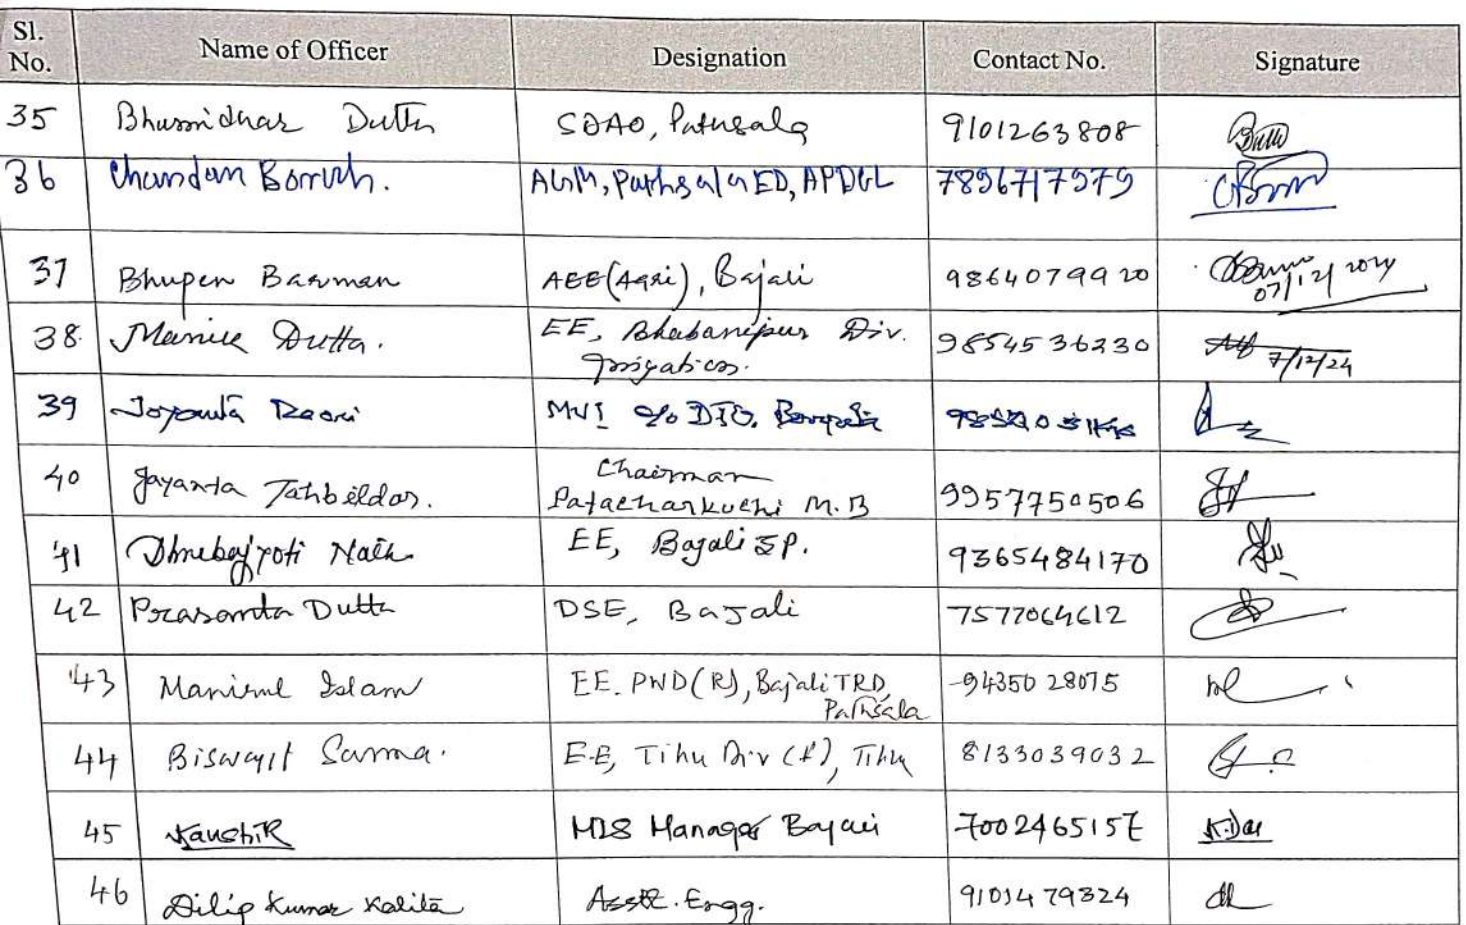 Sl. No. Name of Officer Designation Contact No. Signature
35 Bhumidhar Dutta SDAO, Pathsala 9101263808
36 Chandan Boruah. AGM, Pathsala ED, APDCL 7896717979
37 Bhupen Barman AEE (Agri), Bajali 9864079920 07/12/2024
38. Manik Dutta. EE, Bhabanipur Div. Irrigation. 9854536230 7/12/24
39 MVI o/o DTO.
40 Jayanta Tahbildar. Chairman Patacharkuchi M.B 9957750506
41 Dhrubajyoti Nath EE, Bajali 9365484170
42 Prasanta Dutta DSE, Bajali 7577064612
43 Manirul Islam EE. PWD (R), Bajali TRD, Pathsala 94350 28075
44 Biswajit Sarma. E.E, Tihu Div (I), Tihu 8133039032
45 Kaushik MIS Manager Bajali 7002465157 K.Das
46 Dilip Kumar Kalita Asstt. Engg. 9101479324